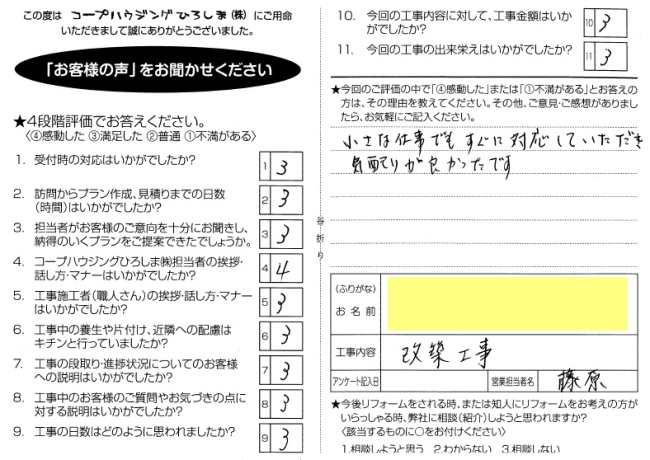 この度は コープハウジングひろしま(株) にご用命
いただきまして誠にありがとうございました。
「お客様の声」をお聞かせください
★4段階評価でお答えください。
〈④感動した ③満足した ②普通 ①不満がある〉
1. 受付時の対応はいかがでしたか?
1 3
2. 訪問からプラン作成、見積りまでの日数
(時間)はいかがでしたか?
2 3
3. 担当者がお客様のご意向を十分にお聞きし、
納得のいくプランをご提案できたでしょうか。
3 3
4. コープハウジングひろしま㈱担当者の挨拶・
話し方・マナーはいかがでしたか?
4 4
5. 工事施工者(職人さん)の挨拶・話し方・マナー
はいかがでしたか?
5 3
6. 工事中の養生や片付け、近隣への配慮は
キチンと行っていましたか?
6 3
7. 工事の段取り・進捗状況についてのお客様
への説明はいかがでしたか?
7 3
8. 工事中のお客様のご質問やお気づきの点に
対する説明はいかがでしたか?
8 3
9. 工事の日数はどのように思われましたか?
9 3
谷折り
10. 今回の工事内容に対して、工事金額はいか
がでしたか?
10 3
11. 今回の工事の出来栄えはいかがでしたか?
11 3
★今回のご評価の中で「④感動した」または「①不満がある」とお答えの
方は、その理由を教えてください。その他、ご意見・ご感想がありまし
たら、お気軽にご記入ください。
小さな仕事でもすぐに対応していただき
気配りが良かったです
(ふりがな)
お名前
工事内容 改築工事
アンケート記入日 営業担当者名 藤原
★今後リフォームをされる時、または知人にリフォームをお考えの方が
いらっしゃる時、弊社に相談(紹介)しようと思われますか?
〈該当するものに○をお付けください〉
1.相談しようと思う 2.わからない 3.相談しない